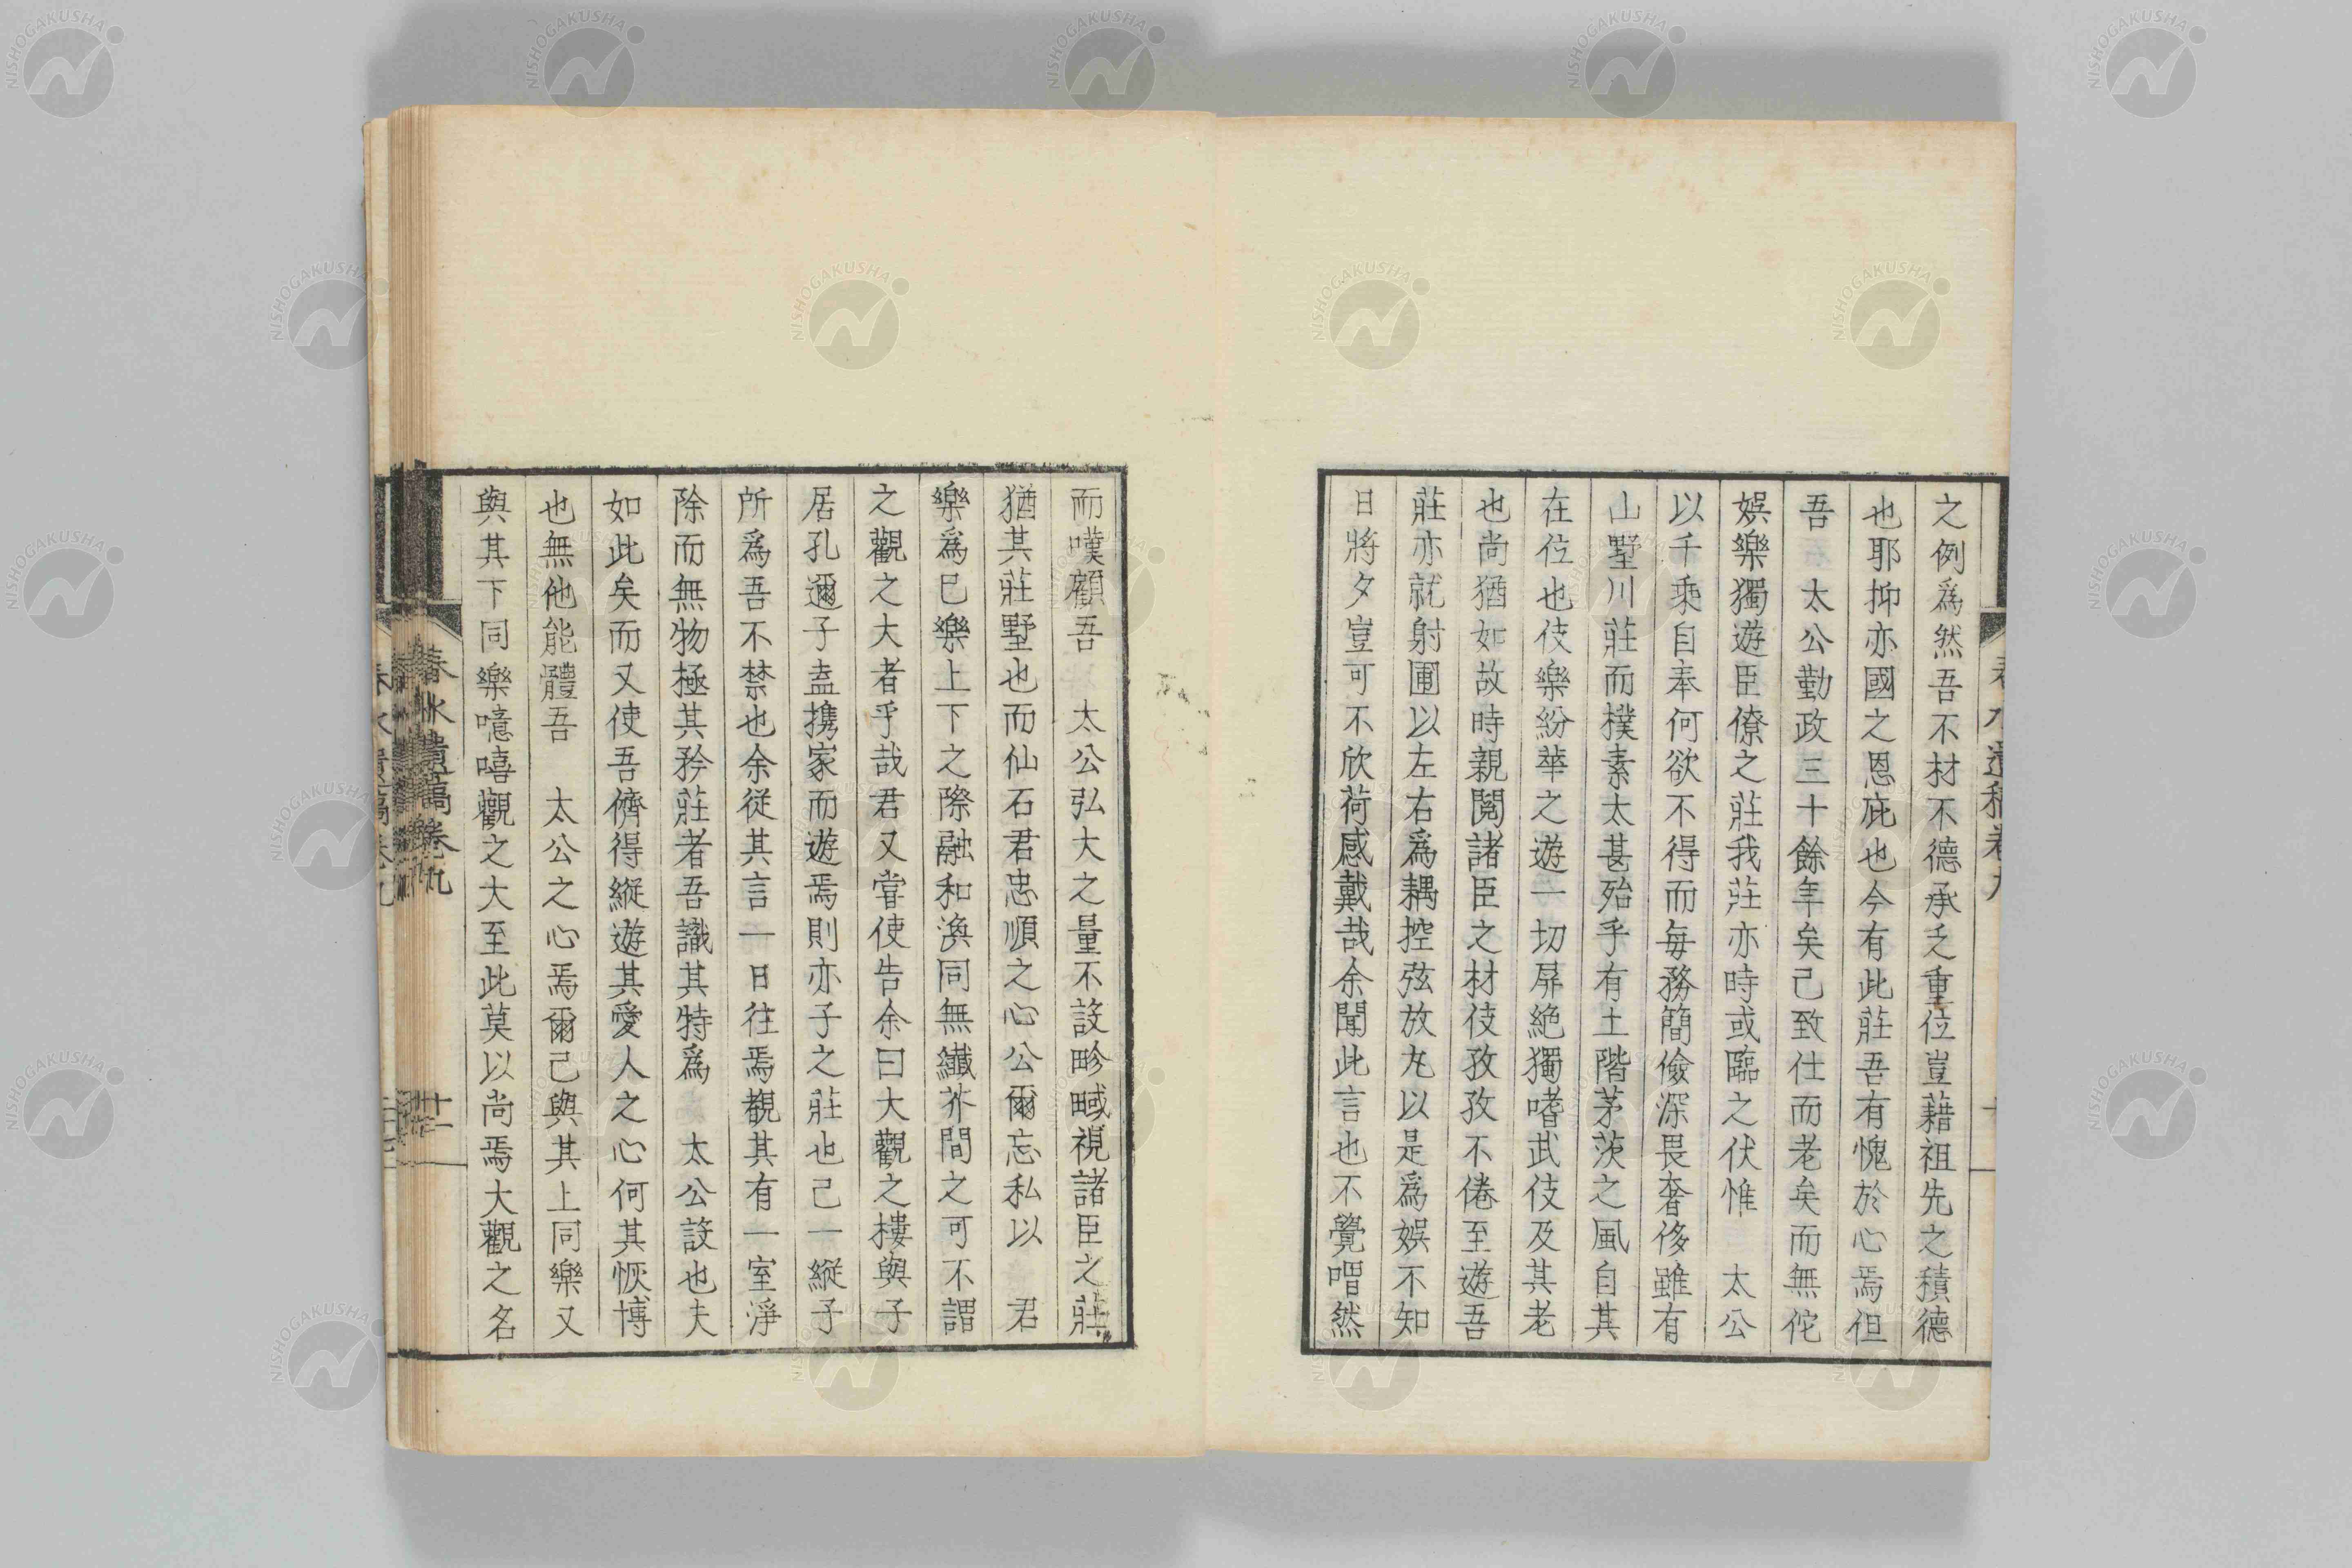 之例爲然吾不材不德承乏重位豈藉祖先之積德
也耶抑亦國之恩庇也今有此莊吾有愧於心焉但
吾　太公勤政三十餘年矣己致仕而老矣而無佗
娯樂獨遊臣僚之莊我莊亦時或臨之伏惟　太公
以千乘自奉何欲不得而毎務簡儉深畏奢侈雖有
山墅川莊而樸素太甚殆乎有土階茅茨之風自其
在位也伎樂紛華之遊一切屏絶獨嗜武伎及其老
也尚猶如故時親閲諸臣之材伎孜孜不倦至遊吾
莊亦就射圃以左右爲耦控弦放丸以是爲娯不知
日將夕豈可不欣荷感戴哉余聞此言也不覺喟然
而嘆顧吾　太公弘大之量不設畛域視諸臣之莊
猶其莊墅也而仙石君忠順之心公爾忘私以　君
樂爲已樂上下之際融和渙同無纎芥間之可不謂
之觀之大者乎哉君又嘗使告余曰大觀之樓與子
居孔邇子盍携家而遊焉則亦子之莊也己一縱子
所爲吾不禁也余從其言一日往焉観其有一室淨
除而無物極其矜莊者吾識其特爲　太公設也夫
如此矣而又使吾儕得縱遊其愛人之心何其恢博
也無他能體吾　太公之心焉爾己與其上同樂又
與其下同樂噫嘻觀之大至此莫以尚焉大觀之名
春水遺稿卷九
十一